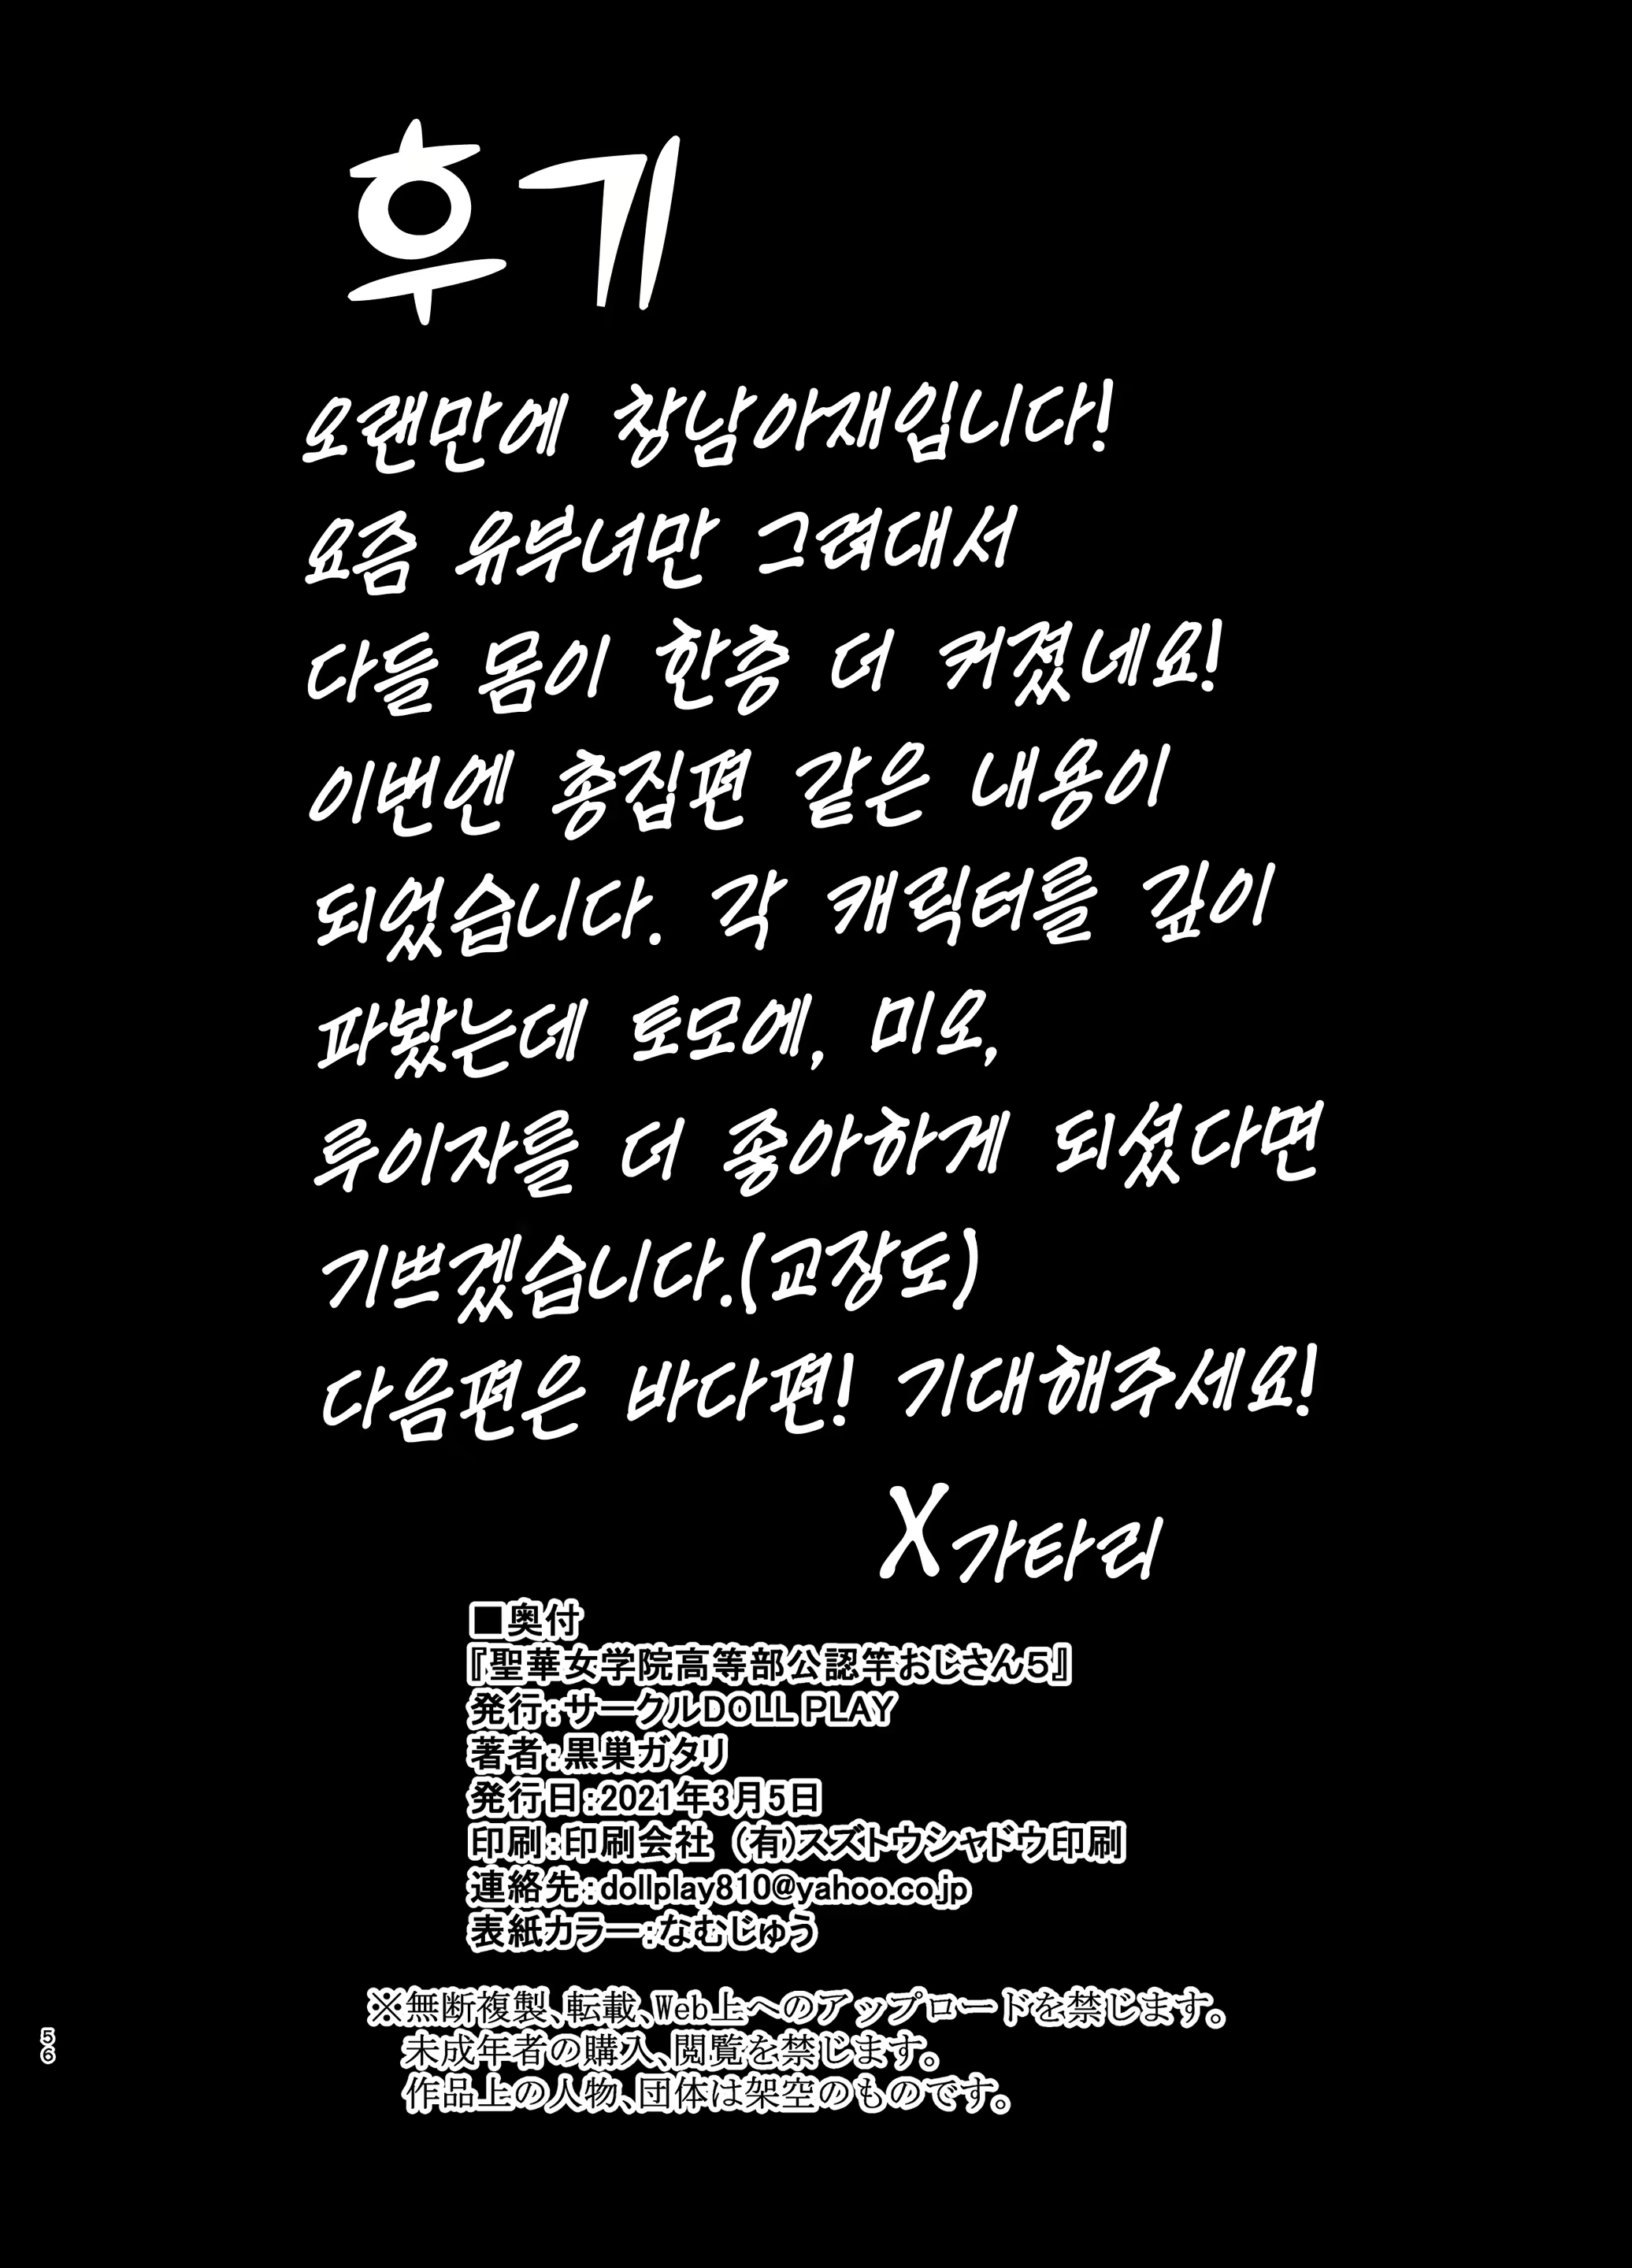 후기
요랜만에 창남아재입니다!
요즘 유부녀만 그려대서
다들 몸이 한층 더 커졌네요!
이번엔 총집편 같은 내용이
되었습니다. 각 캐릭터를 깊이
파봤는데 토모에, 미오,
루이자를 더 좋아하게 되셨다면
기쁘겠습니다.(교장도)
다음편은 바다편! 기대해주세요!
X가타리
■奥付
『聖華女学院高等部公認竿おじさん5』
発行：サークルDOLL PLAY
著者：黒巣ガタリ
発行日：2021年3月5日
印刷：印刷会社　(有)スズトウシャドウ印刷
連絡先：dollplay810@yahoo.co.jp
表紙カラー：なむじゅう
※無断複製、転載、Web上へのアップロードを禁じます。
未成年者の購入、閲覧を禁じます。
作品上の人物、団体は架空のものです。
56